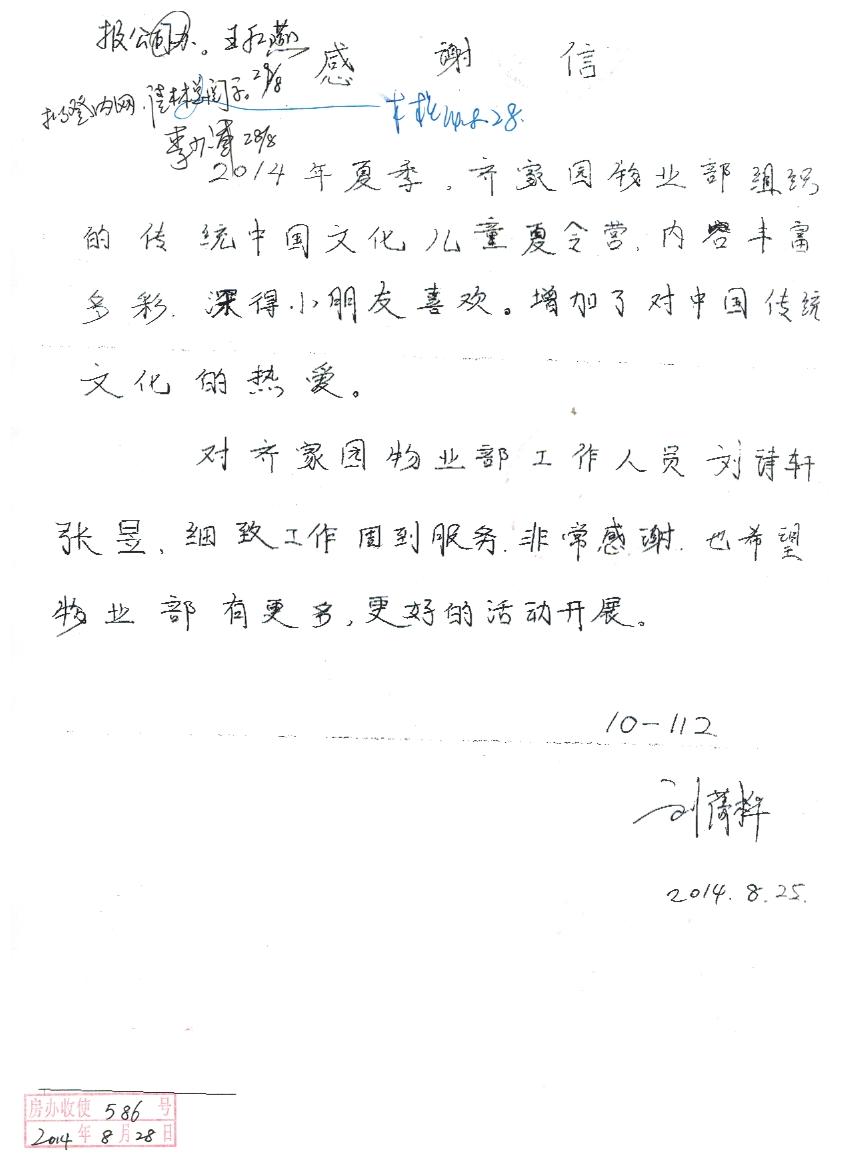 报公司办。王红燕
29/8
感谢信
拟登内网。
28/8
2014年夏季，齐家园物业部组织
的传统中国文化儿童夏令营，内容丰富
多彩，深得小朋友喜欢。增加了对中国传统
文化的热爱。
对齐家园物业部工作人员刘诗轩
张昱，细致工作周到服务，非常感谢，也希望
物业部有更多，更好的活动开展。
10-112
2014.8.25.
房办收使586号
2014年8月28日